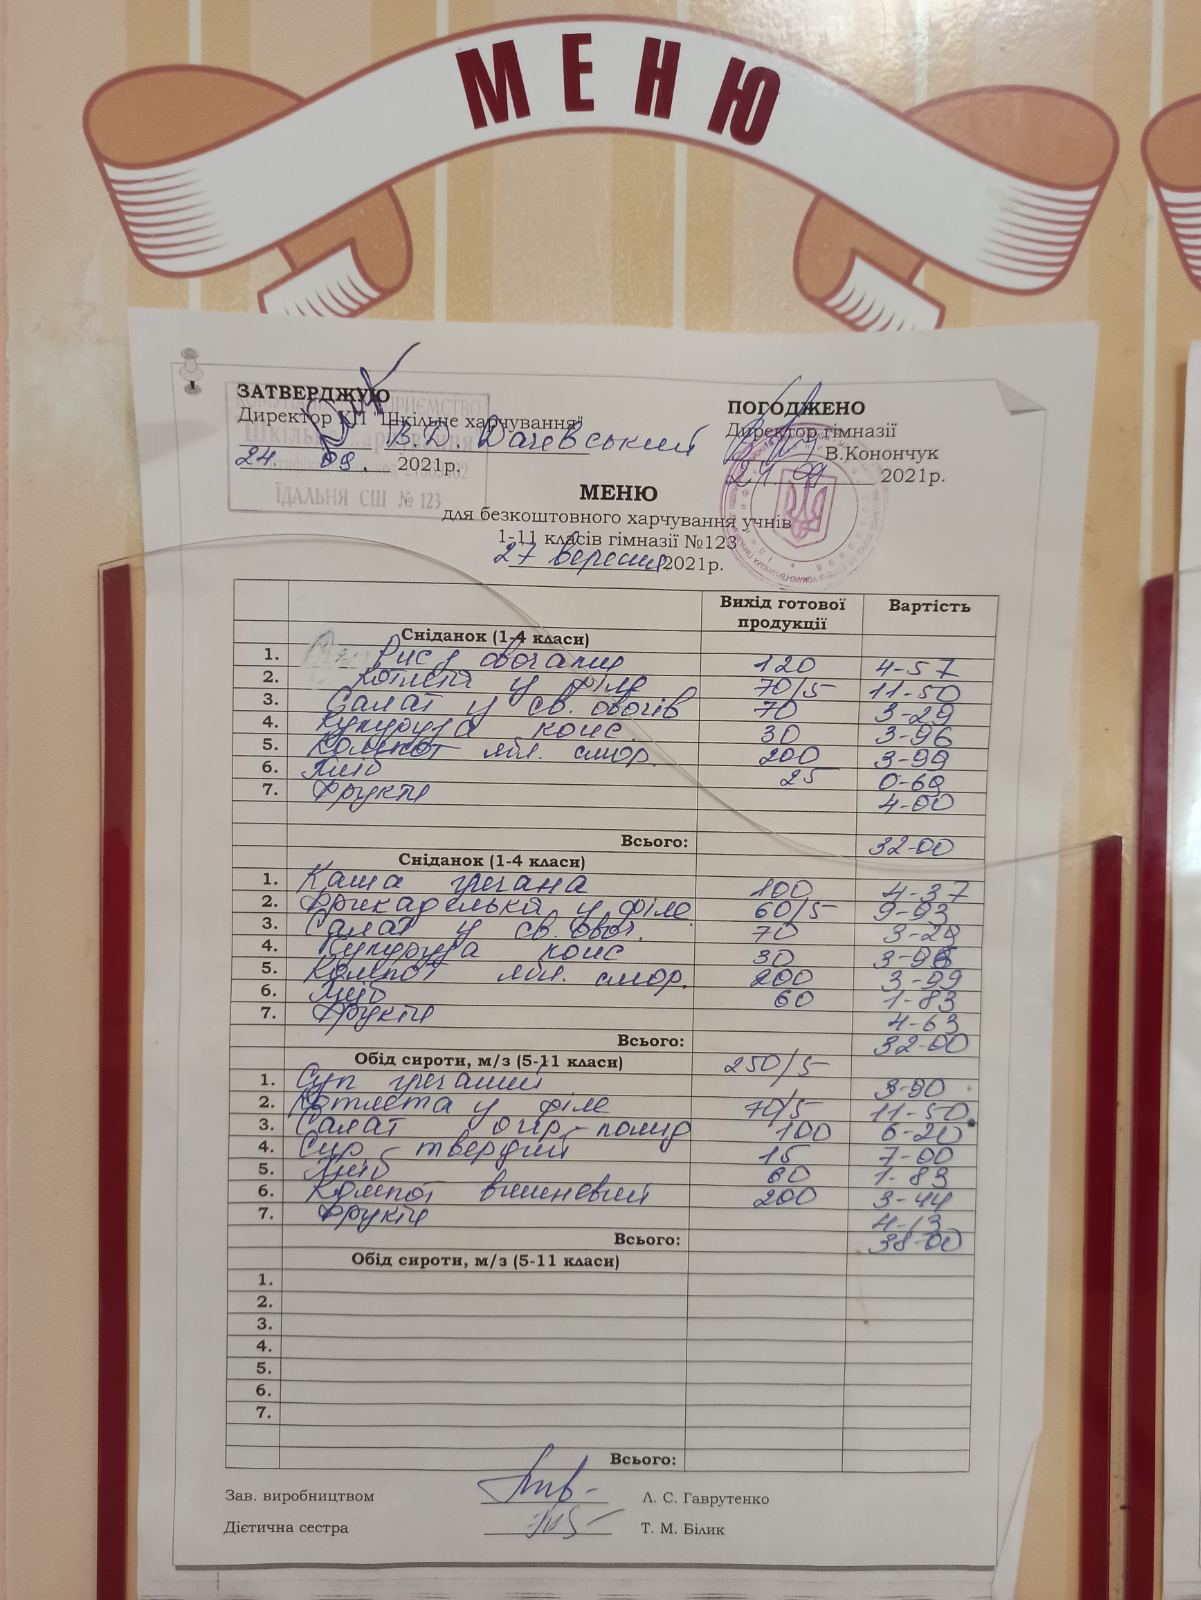 МЕНЮ
ЗАТВЕРДЖУЮ
Директор КП "Шкільне харчування"
В.Д. Дачевський
24 09. 2021р.
ЇДАЛЬНЯ СШ № 123
ПОГОДЖЕНО
Директор гімназії
В.Конончук
24 09 2021р.
МЕНЮ
для безкоштовного харчування учнів
1-11 класів гімназії №123
27 вересня 2021р.
Вихід готової продукції Вартість
Сніданок (1-4 класи)
1. Рис з овочами 120 4-57
2. Котлета у філе 70/5 11-50
3. Салат у св. овочів 70 3-29
4. Кукурудза конс. 30 3-96
5. Компот ябл. смор. 200 3-99
6. Хліб 25 0-69
7. Фрукти 4-00
Всього: 32-00
Сніданок (1-4 класи)
1. Каша гречана 100 4-37
2. Фрикаделька у філе 60/5 9-93
3. Салат у св. овоч. 70 3-29
4. Кукурудза конс 30 3-96
5. Компот ябл. смор. 200 3-99
6. Хліб 60 1-83
7. Фрукти 4-63
Всього: 32-00
Обід сироти, м/з (5-11 класи) 250/5
1. Суп гречаний 3-90
2. Котлета у філе 70/5 11-50
3. Салат огір-помід 100 6-20
4. Сир твердий 15 7-00
5. Хліб 60 1-83
6. Компот вишневий 200 3-44
7. Фрукти 4-13
Всього: 38-00
Обід сироти, м/з (5-11 класи)
1.
2.
3.
4.
5.
6.
7.
Всього:
Зав. виробництвом Л. С. Гаврутенко
Дієтична сестра Т. М. Білик